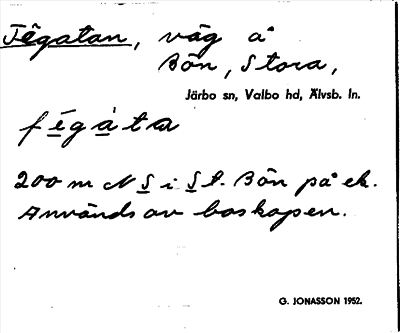 Fêgatan, väg å
Bön, Stora,
Järbo sn, Valbo hd, Älvsb. ln.
fégàta
200 m N S i St. Bön på ek.
Används av boskapen.
G. JONASSON 1952.